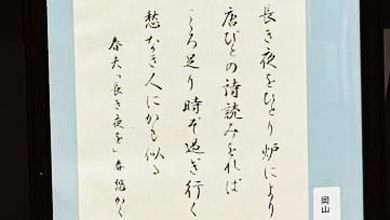 長き夜をひとり炉により
唐びとの詩読みをれば
こころ足り時ぞ過ぎ行く
愁なき人にかも似る
春夫「長き夜を」春悠かく
岡山